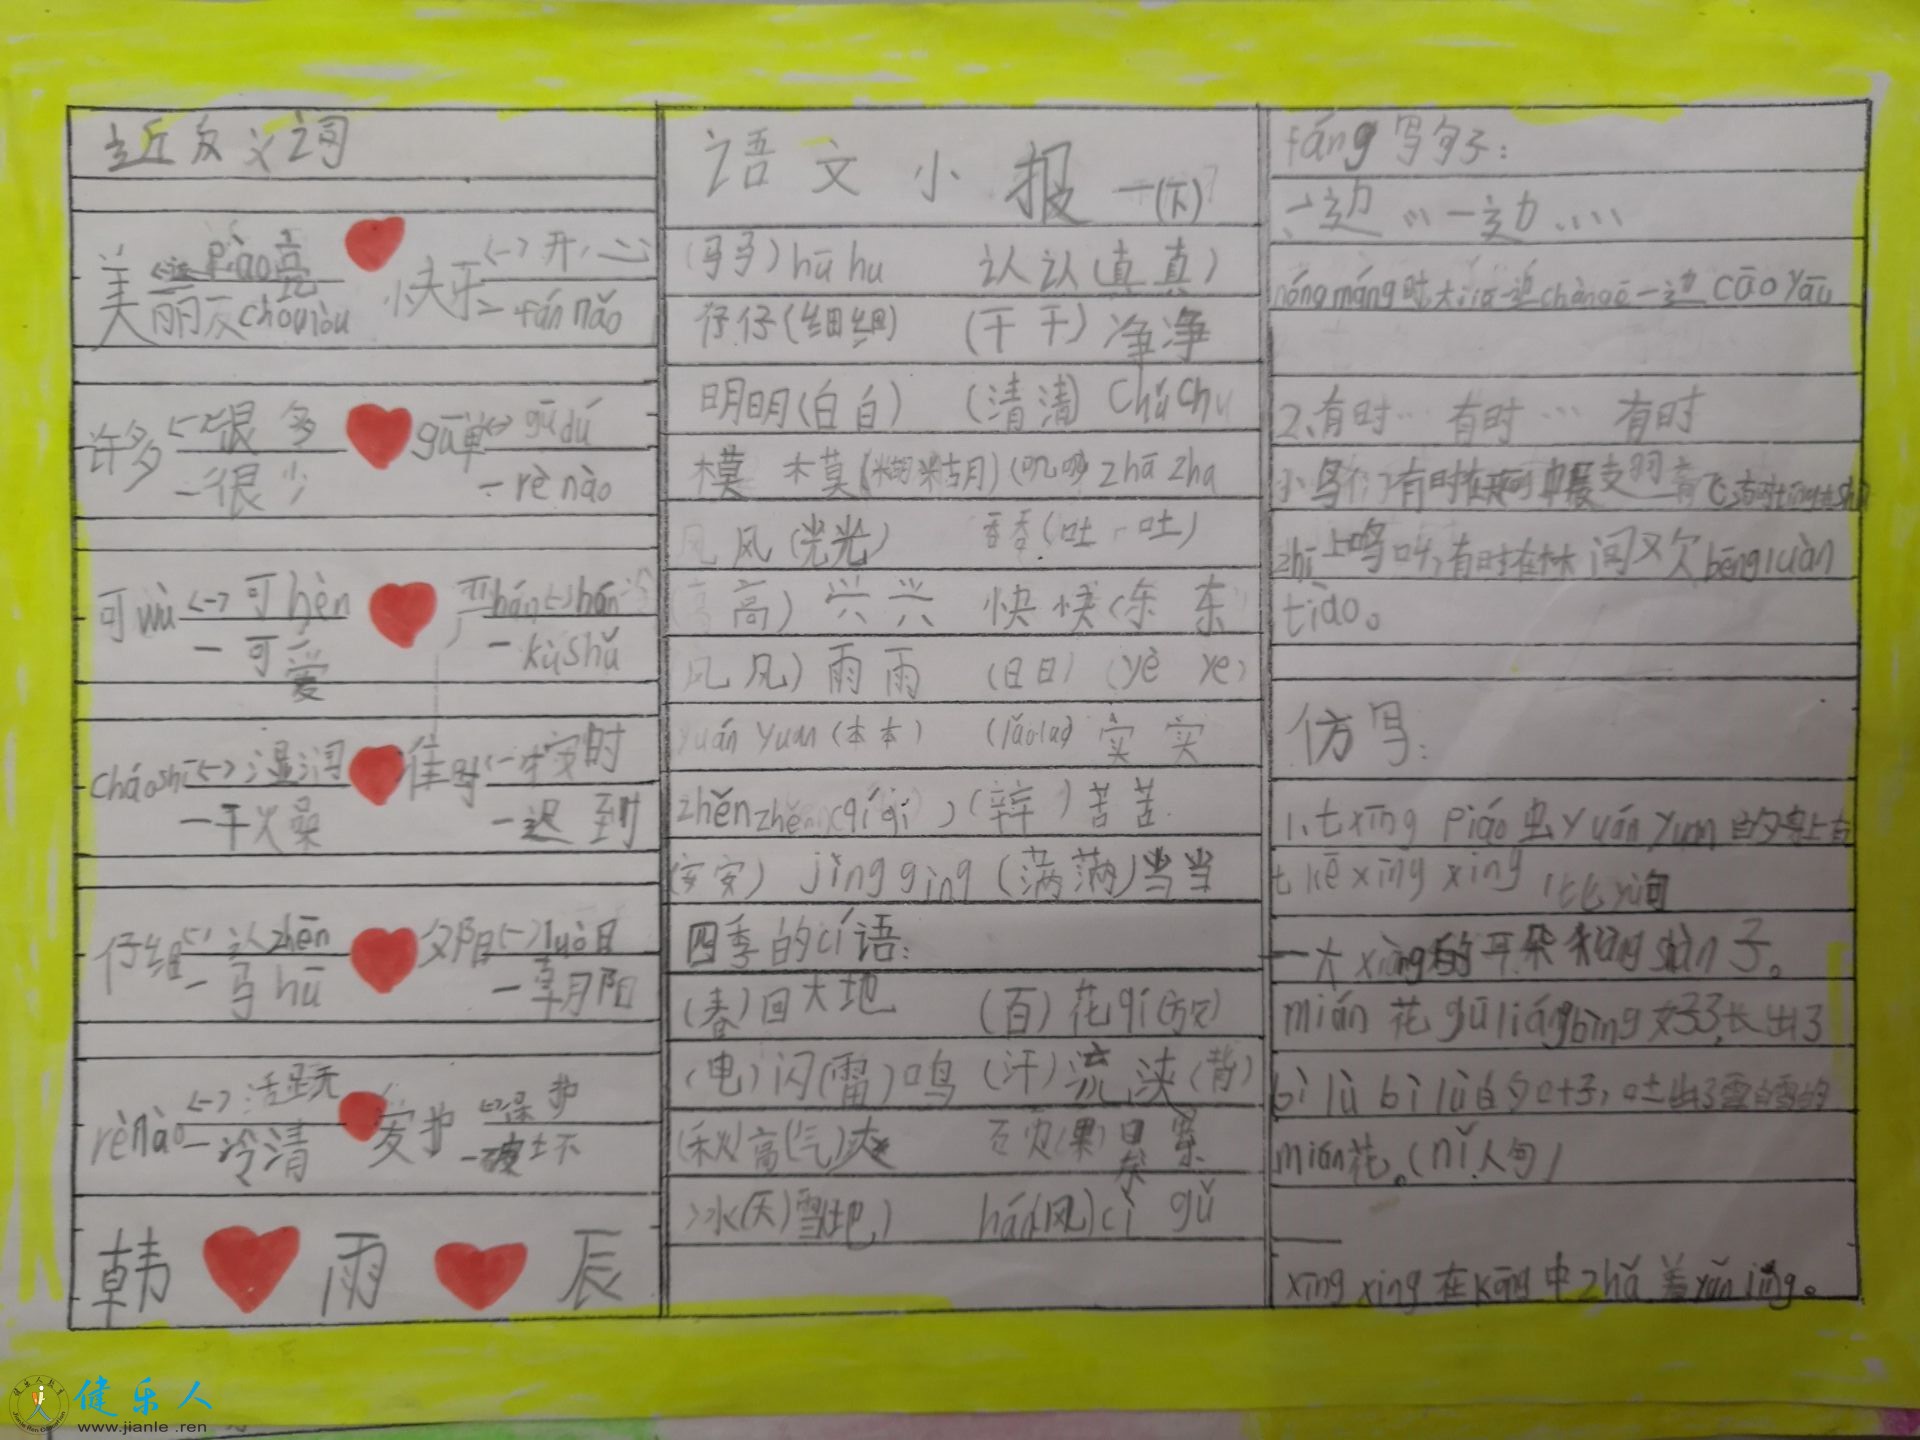 近反义词
美丽 ←→ piào亮
反 chǒulòu
快乐 ←→ 开心
— fán nǎo
许多 ←→ 很多
— 很少
gū单 ←→ gū dú
— rè nào
可wù ←→ 可hèn
— 可爱
— kù shǔ
cháoshī ←→ 湿润
— 干燥
准时 ←→ 按时
— 迟到
仔细 ←→ 认zhēn
— 马hū
夕阳 ←→ luò日
— 朝阳
rènào ←→ 活跃
— 冷清
爱护 ←→ 保护
— 破坏
韩 雨 辰
语文小报 一(下)
(马马) hū hu 认认(真真)
仔仔(细细) (干干)净净
明明(白白) (清清) chǔ chu
模模(糊糊) (叽叽 zhā zha
风风(光光)
(高高)兴兴 快快(乐乐)
(风风)雨雨 (日日) (yè ye)
yuán yuan (本本) (lǎolao) 实实
zhěn zhěn (qí qí) (辛辛)苦苦
(安安) jìng jìng (满满)当当
四季的cí语:
(春)回大地 (百)花qí(放)
(电)闪(雷)鸣 (汗)流浃(背)
(秋)高(气)爽 (果)累累
冰(天)雪(地) hán(风)cì gǔ
fáng写句子:
一边…一边……
nóng máng时 一边 一边 cāo yāng
2、有时… 有时… 有时
小鸟们有时在 有时tíng在shù
zhī上鸣叫,有时在林间又欢bèng luàn
tiào。
仿写:
1、七xīng piáo虫yuán yuan的身上有
七kē xīng xing 比yù句
大xiàng的耳朵xiàng shàn子。
mián花gū liáng bìng好了,长出了
bì lǜ bì lǜ的叶子,吐出了雪白雪白的
mián花。(nǐ人句)
xīng xing在kōng中zhǎ着yǎn jīng。
健乐人
www.jianle.ren